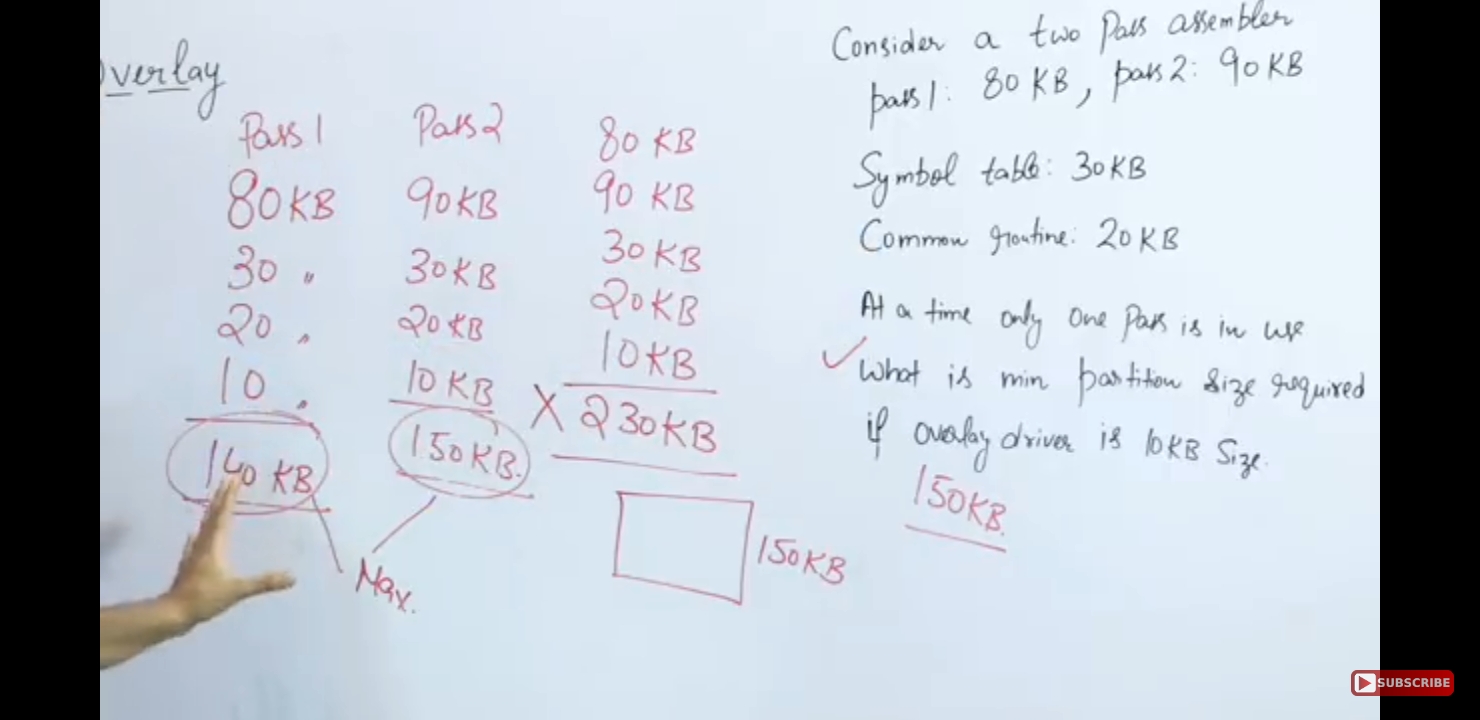 Overlay
Pass 1
80KB
30 "
20 "
10 "
140 KB
Pass 2
90KB
30KB
20KB
10 KB
150KB.
Max.
80 KB
90 KB
30 KB
20KB
10KB
X 230KB
150KB
Consider a two Pass assembler
pass1: 80 KB, pass2: 90KB
Symbol table: 30KB
Common routine: 20KB
At a time only one Pass is in use
✓ What is min partition size required
if overlay driver is 10KB Size.
150KB.
SUBSCRIBE